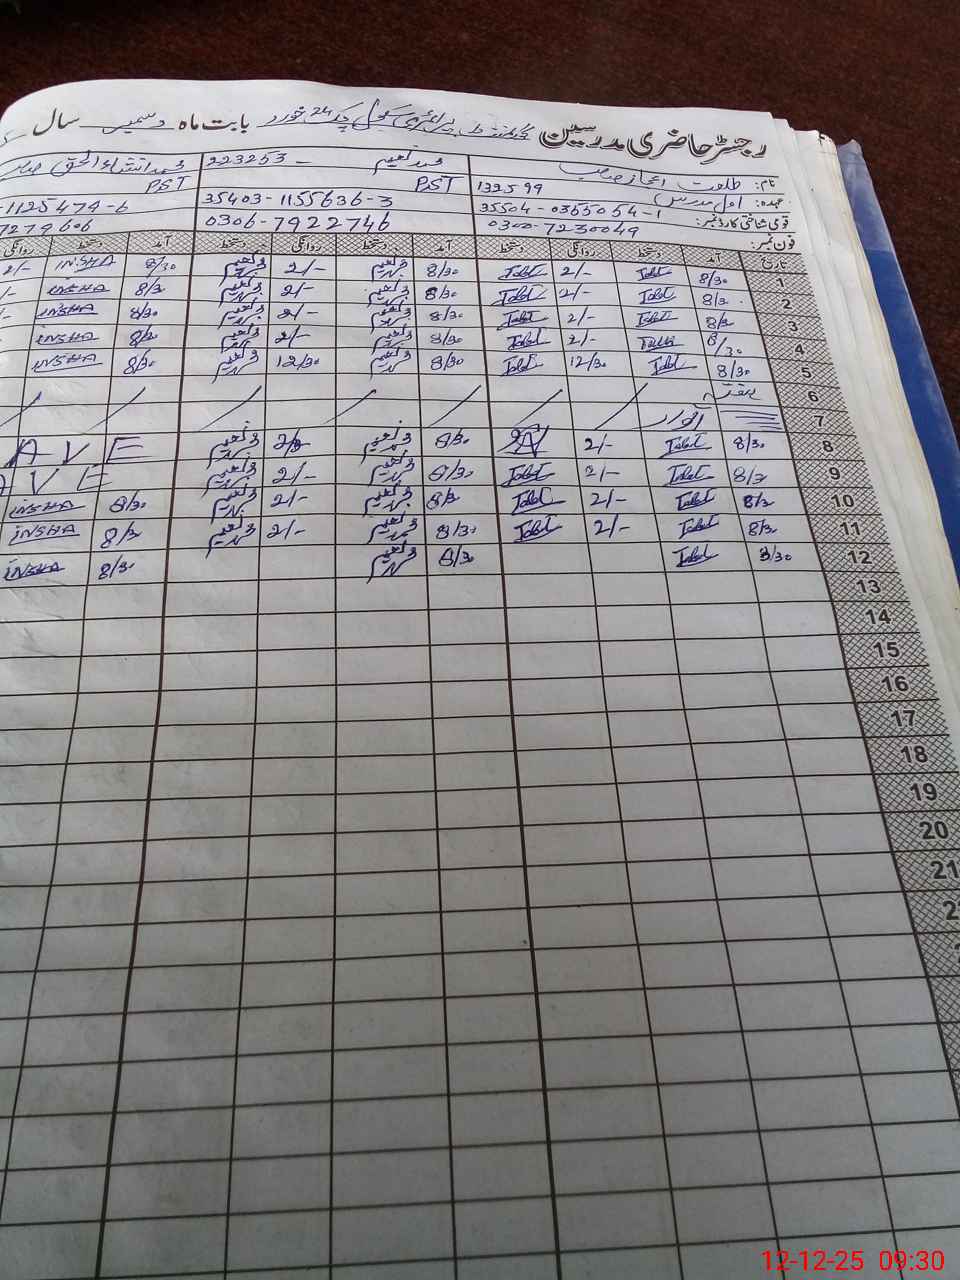 رجسٹر حاضری مدرسین گورنمنٹ پرائمری سکول چک 24 خورد بابت ماہ دسمبر سال
نام: طلعت اعجاز صاحب 132599 محمد نعیم 223253 - محمد انشاء الحق
عہدہ: اول مدرس PST PST
قومی شناختی کارڈ نمبر: 35504-0365054-1 35403-1155636-3 -1125479-6
فون نمبر: 0300-7230049 0306-7922746 7279606
تاریخ آمد دستخط روانگی دستخط آمد دستخط روانگی دستخط آمد دستخط روانگی
1 8/30 Talat 2/- Talat 8/30 محمد نعیم 2/- محمد نعیم 8/30 INSHA 2/-
2 8/3 Talat 2/- Talat 8/30 محمد نعیم 2/- محمد نعیم 8/3 INSHA /-
3 8/3 Talat 2/- Talat 8/30 محمد نعیم 2/- محمد نعیم 8/30 INSHA /-
4 8/30 2/- Talat 8/30 محمد نعیم 2/- محمد نعیم 8/3 INSHA
5 8/30 Talat 12/30 Talat 8/30 محمد نعیم 12/30 محمد نعیم 8/3 INSHA
6 ہفتہ
7 اتوار
8 8/30 Talat 2/- 8/30 محمد نعیم محمد نعیم AVE
9 8/3 Talat 2/- Talat 8/30 محمد نعیم 2/- محمد نعیم AVE
10 8/3 Talat 2/- Talat 8/3 محمد نعیم 2/- محمد نعیم 8/30 INSHA
11 8/3 Talat 2/- Talat 8/30 محمد نعیم 2/- محمد نعیم 8/3 INSHA
12 8/30 Talat 8/3 محمد نعیم 8/3 INSHA
13
14
15
16
17
18
19
20
21
12-12-25 09:30